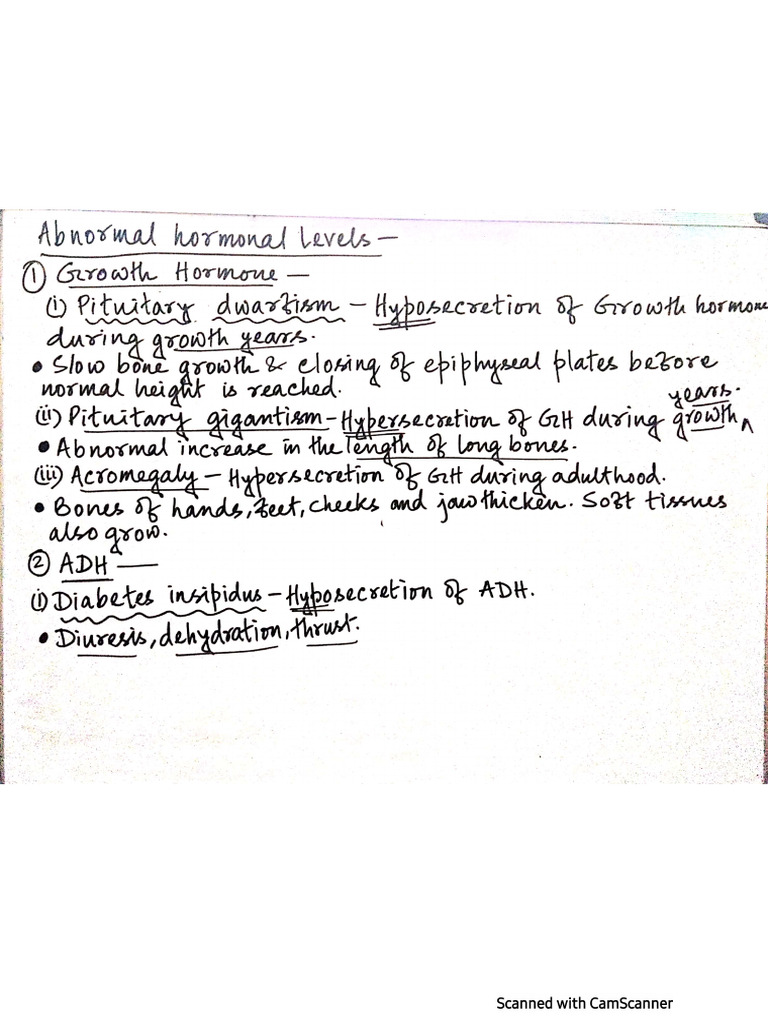 Abnormal hormonal Levels —
① Growth Hormone —
(i) Pituitary dwarfism — Hyposecretion of Growth hormone
during growth years.
• Slow bone growth & closing of epiphyseal plates before
normal height is reached.
(ii) Pituitary gigantism - Hypersecretion of GH during growth ^ years.
• Abnormal increase in the length of long bones.
(iii) Acromegaly — Hypersecretion of GH during adulthood.
• Bones of hands, feet, cheeks and jaw thicken. Soft tissues
also grow.
② ADH —
(i) Diabetes insipidus — Hyposecretion of ADH.
• Diuresis, dehydration, thrust.
Scanned with CamScanner